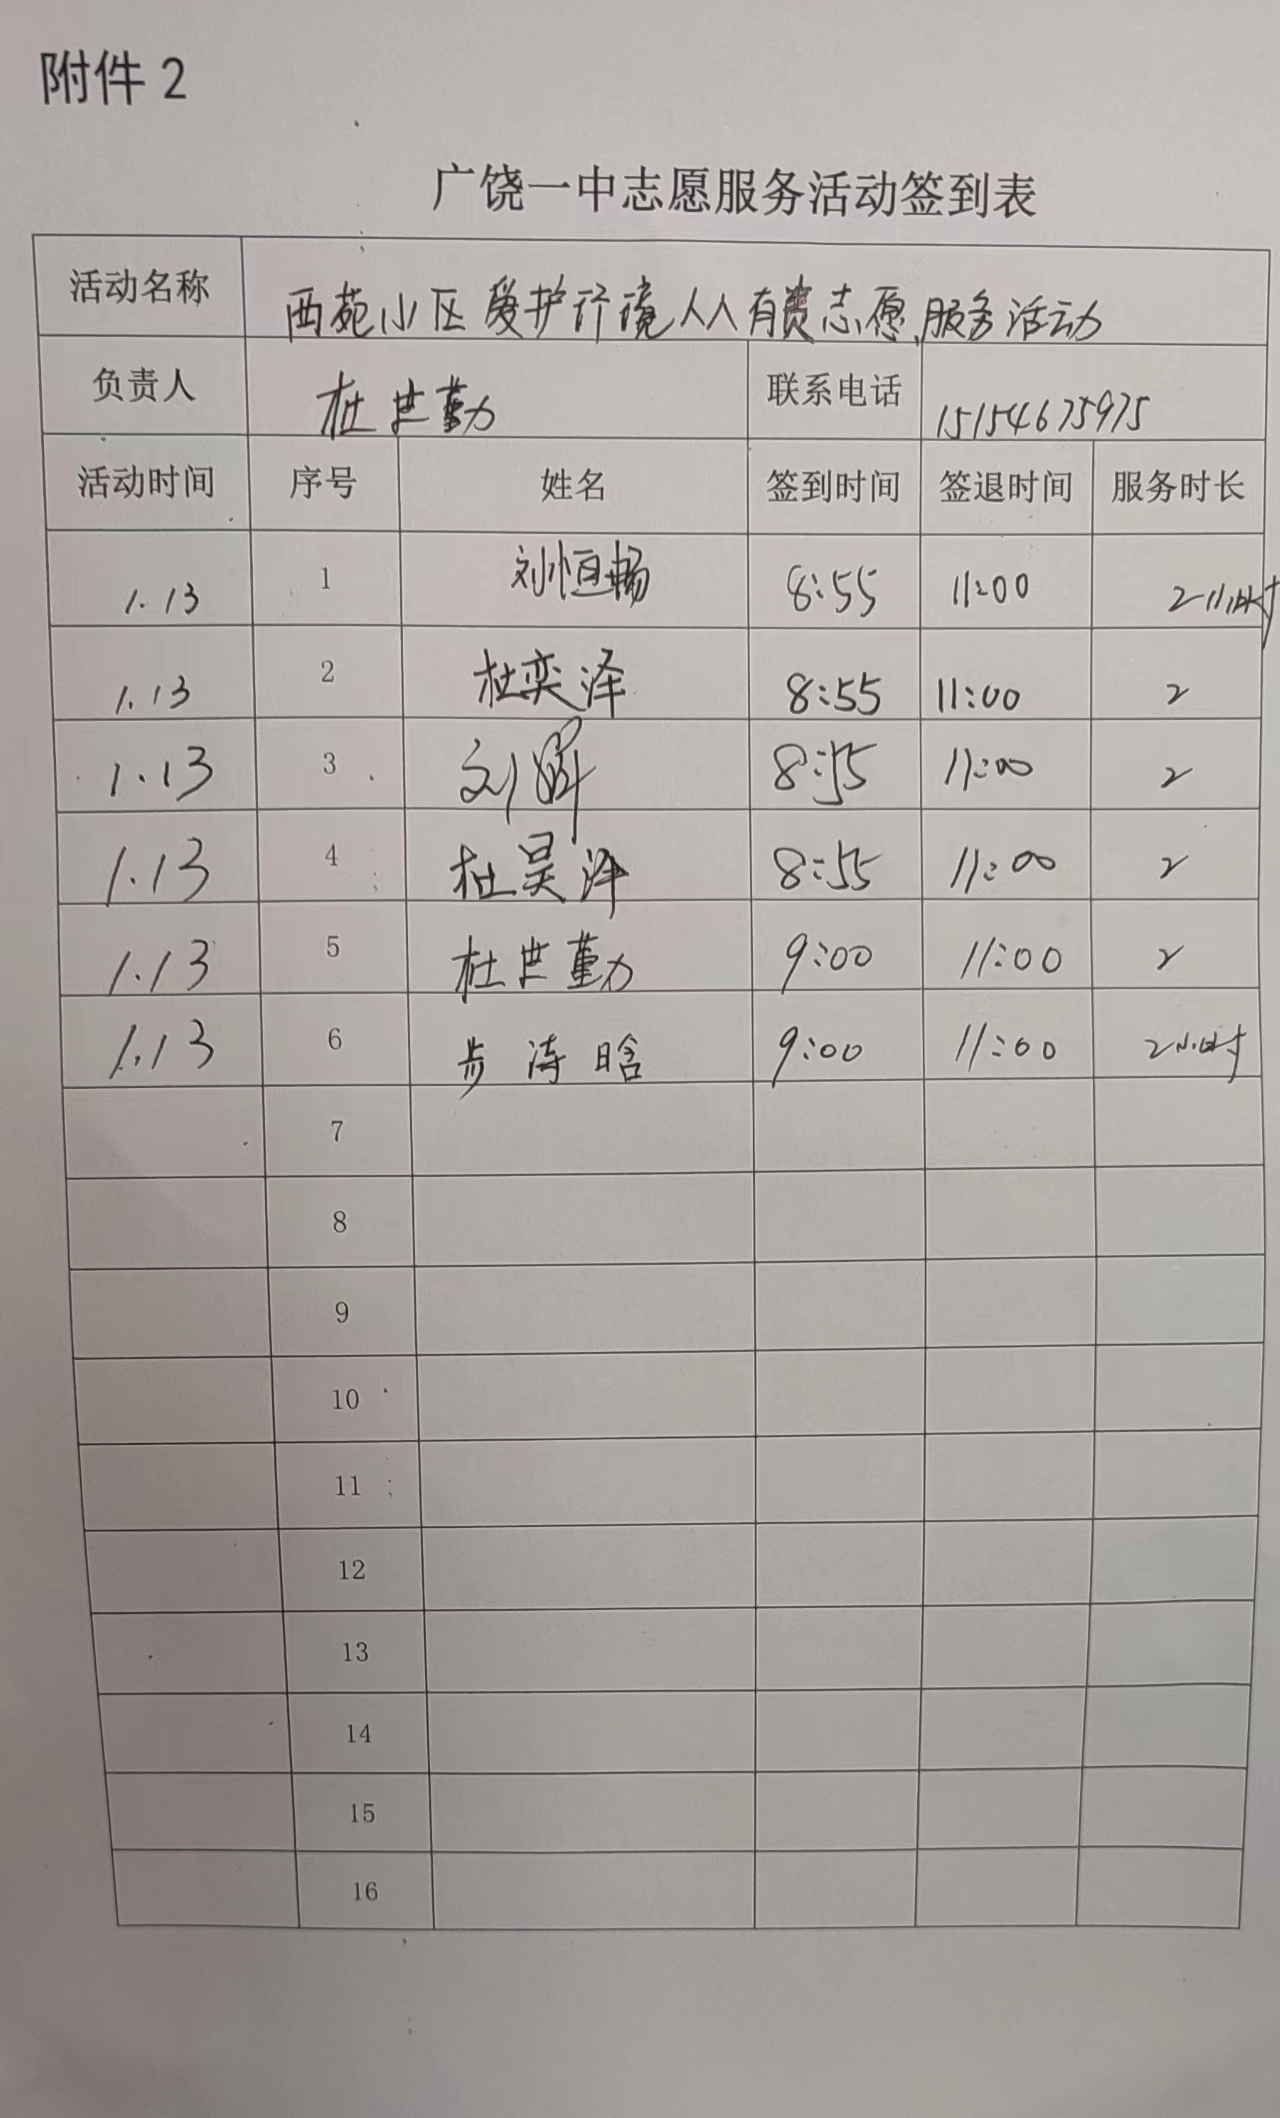 附件 2
广饶一中志愿服务活动签到表
活动名称 西苑小区爱护环境人人有责志愿服务活动
负责人 杜世勤 联系电话 15154675975
活动时间 序号 姓名 签到时间 签退时间 服务时长
1.13 1 刘恒畅 8:55 11:00 2小时
1.13 2 杜奕泽 8:55 11:00 2
1.13 3 刘 8:55 11:00 2
1.13 4 杜昊泽 8:55 11:00 2
1.13 5 杜世勤 9:00 11:00 2
1.13 6 步涛晗 9:00 11:00 2小时
7
8
9
10
11
12
13
14
15
16